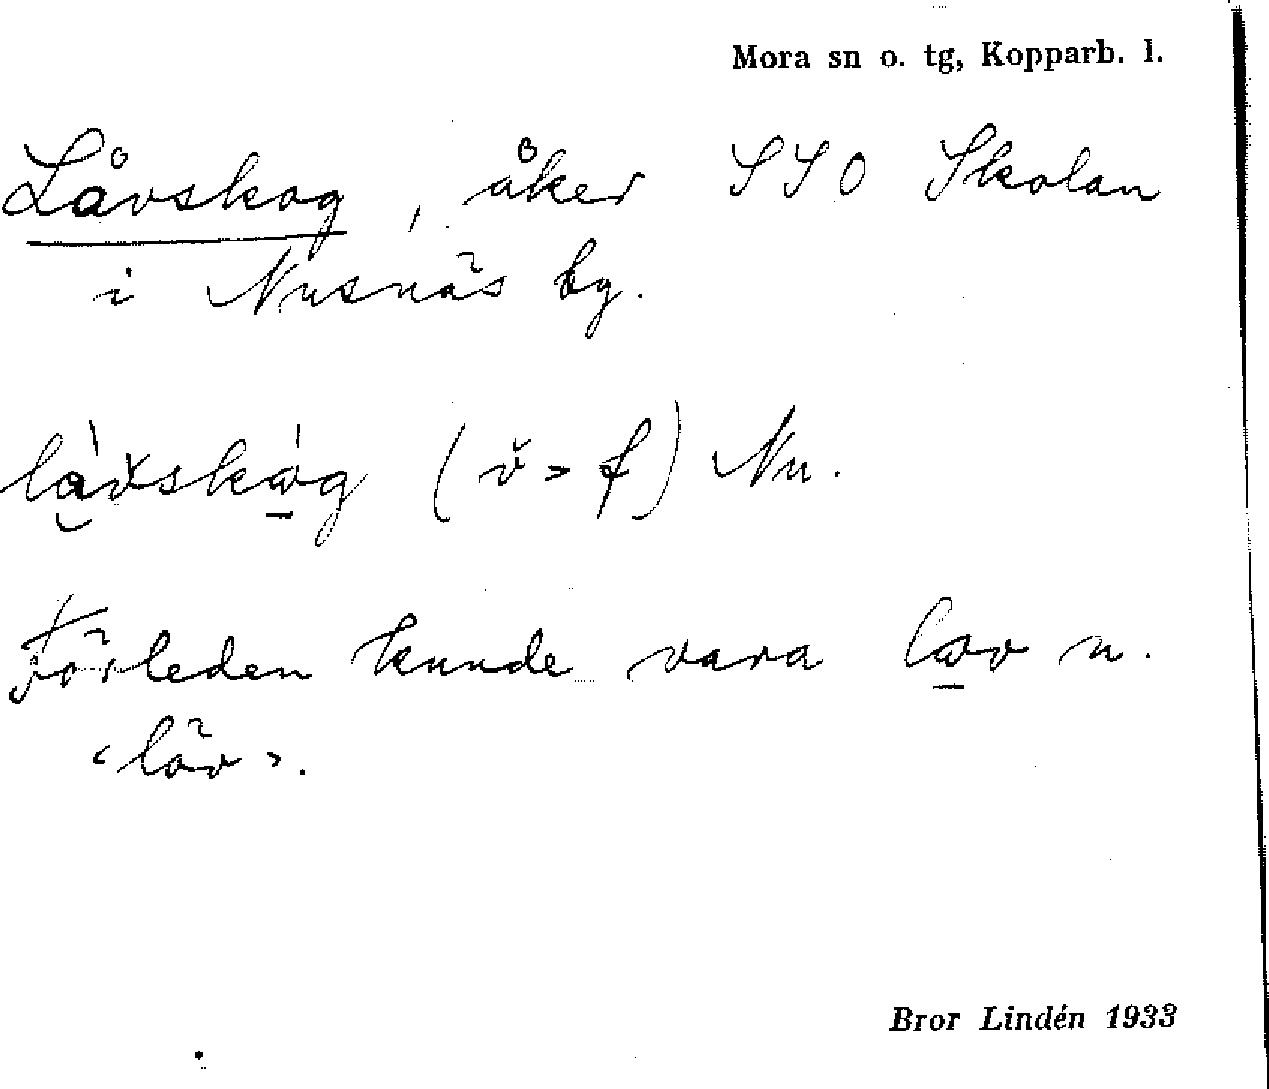 Mora sn o. tg, Kopparb. l.
Låvskog, åker SSO Skolan
i Nusnäs by.
(v̌ > f) Nu.
Förleden kunde vara lωv n.
‹löv›.
Bror Lindén 1933